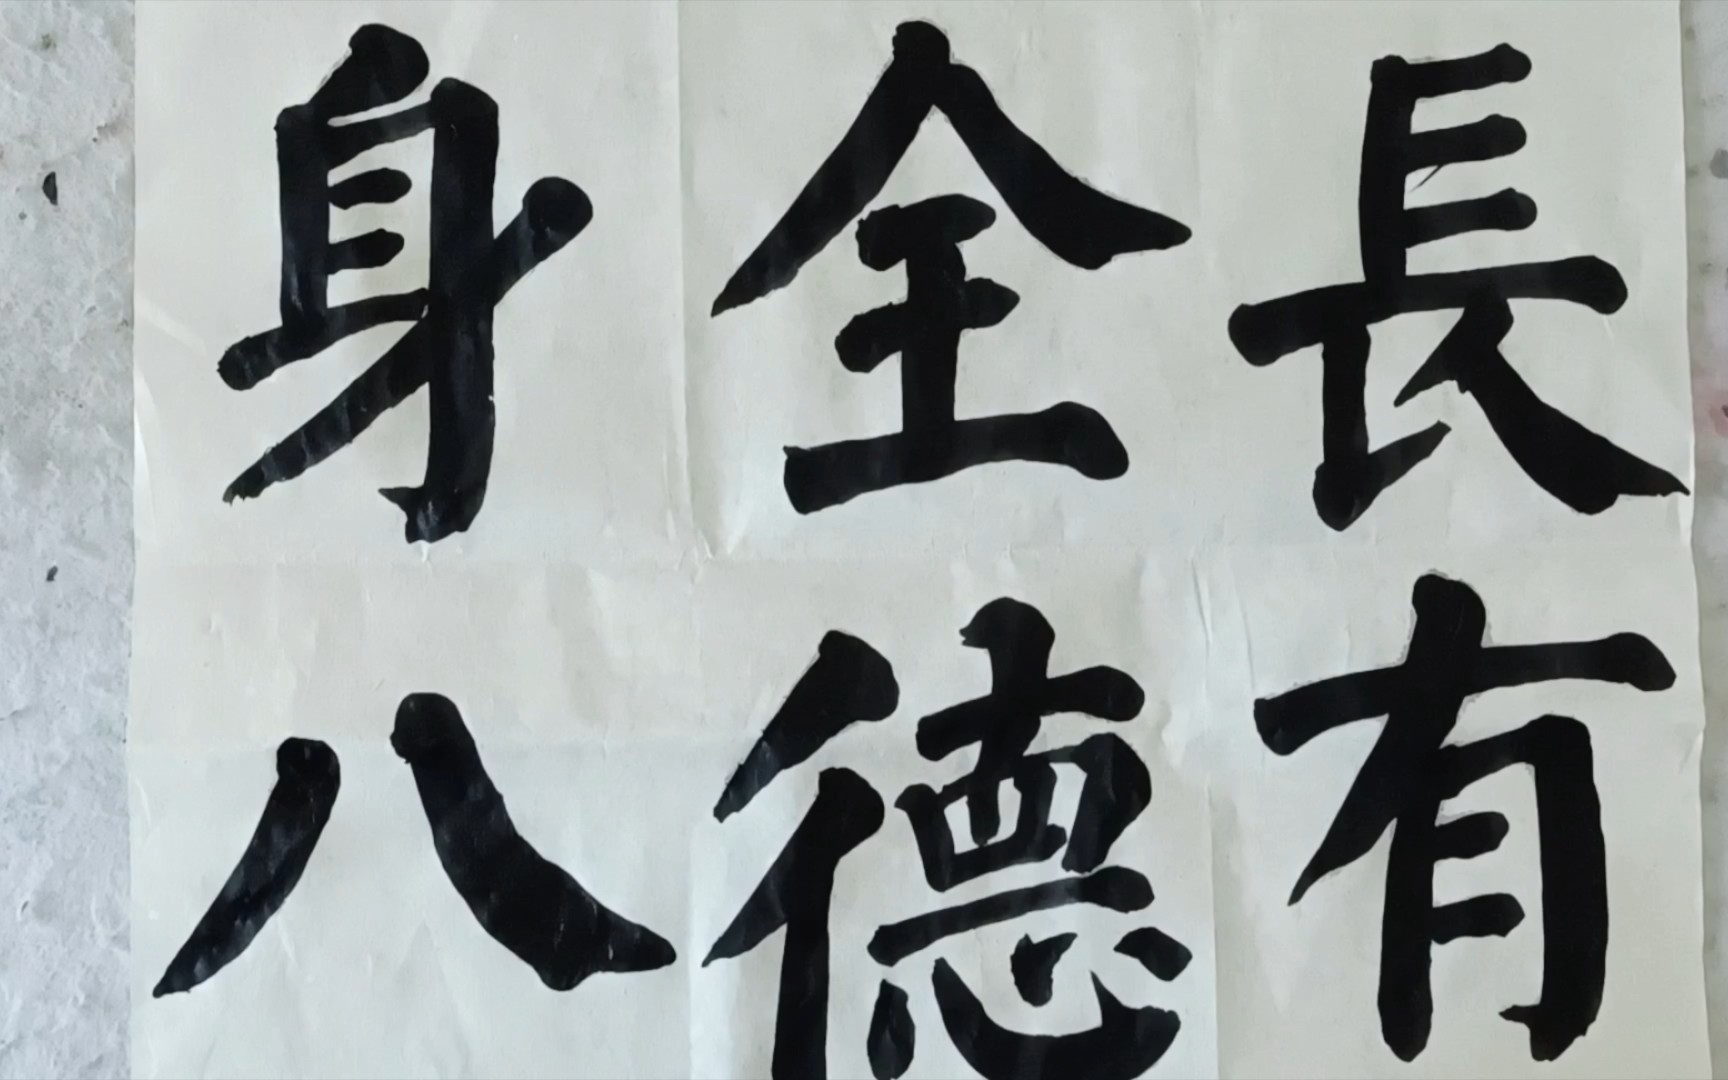 長有
全德
身八